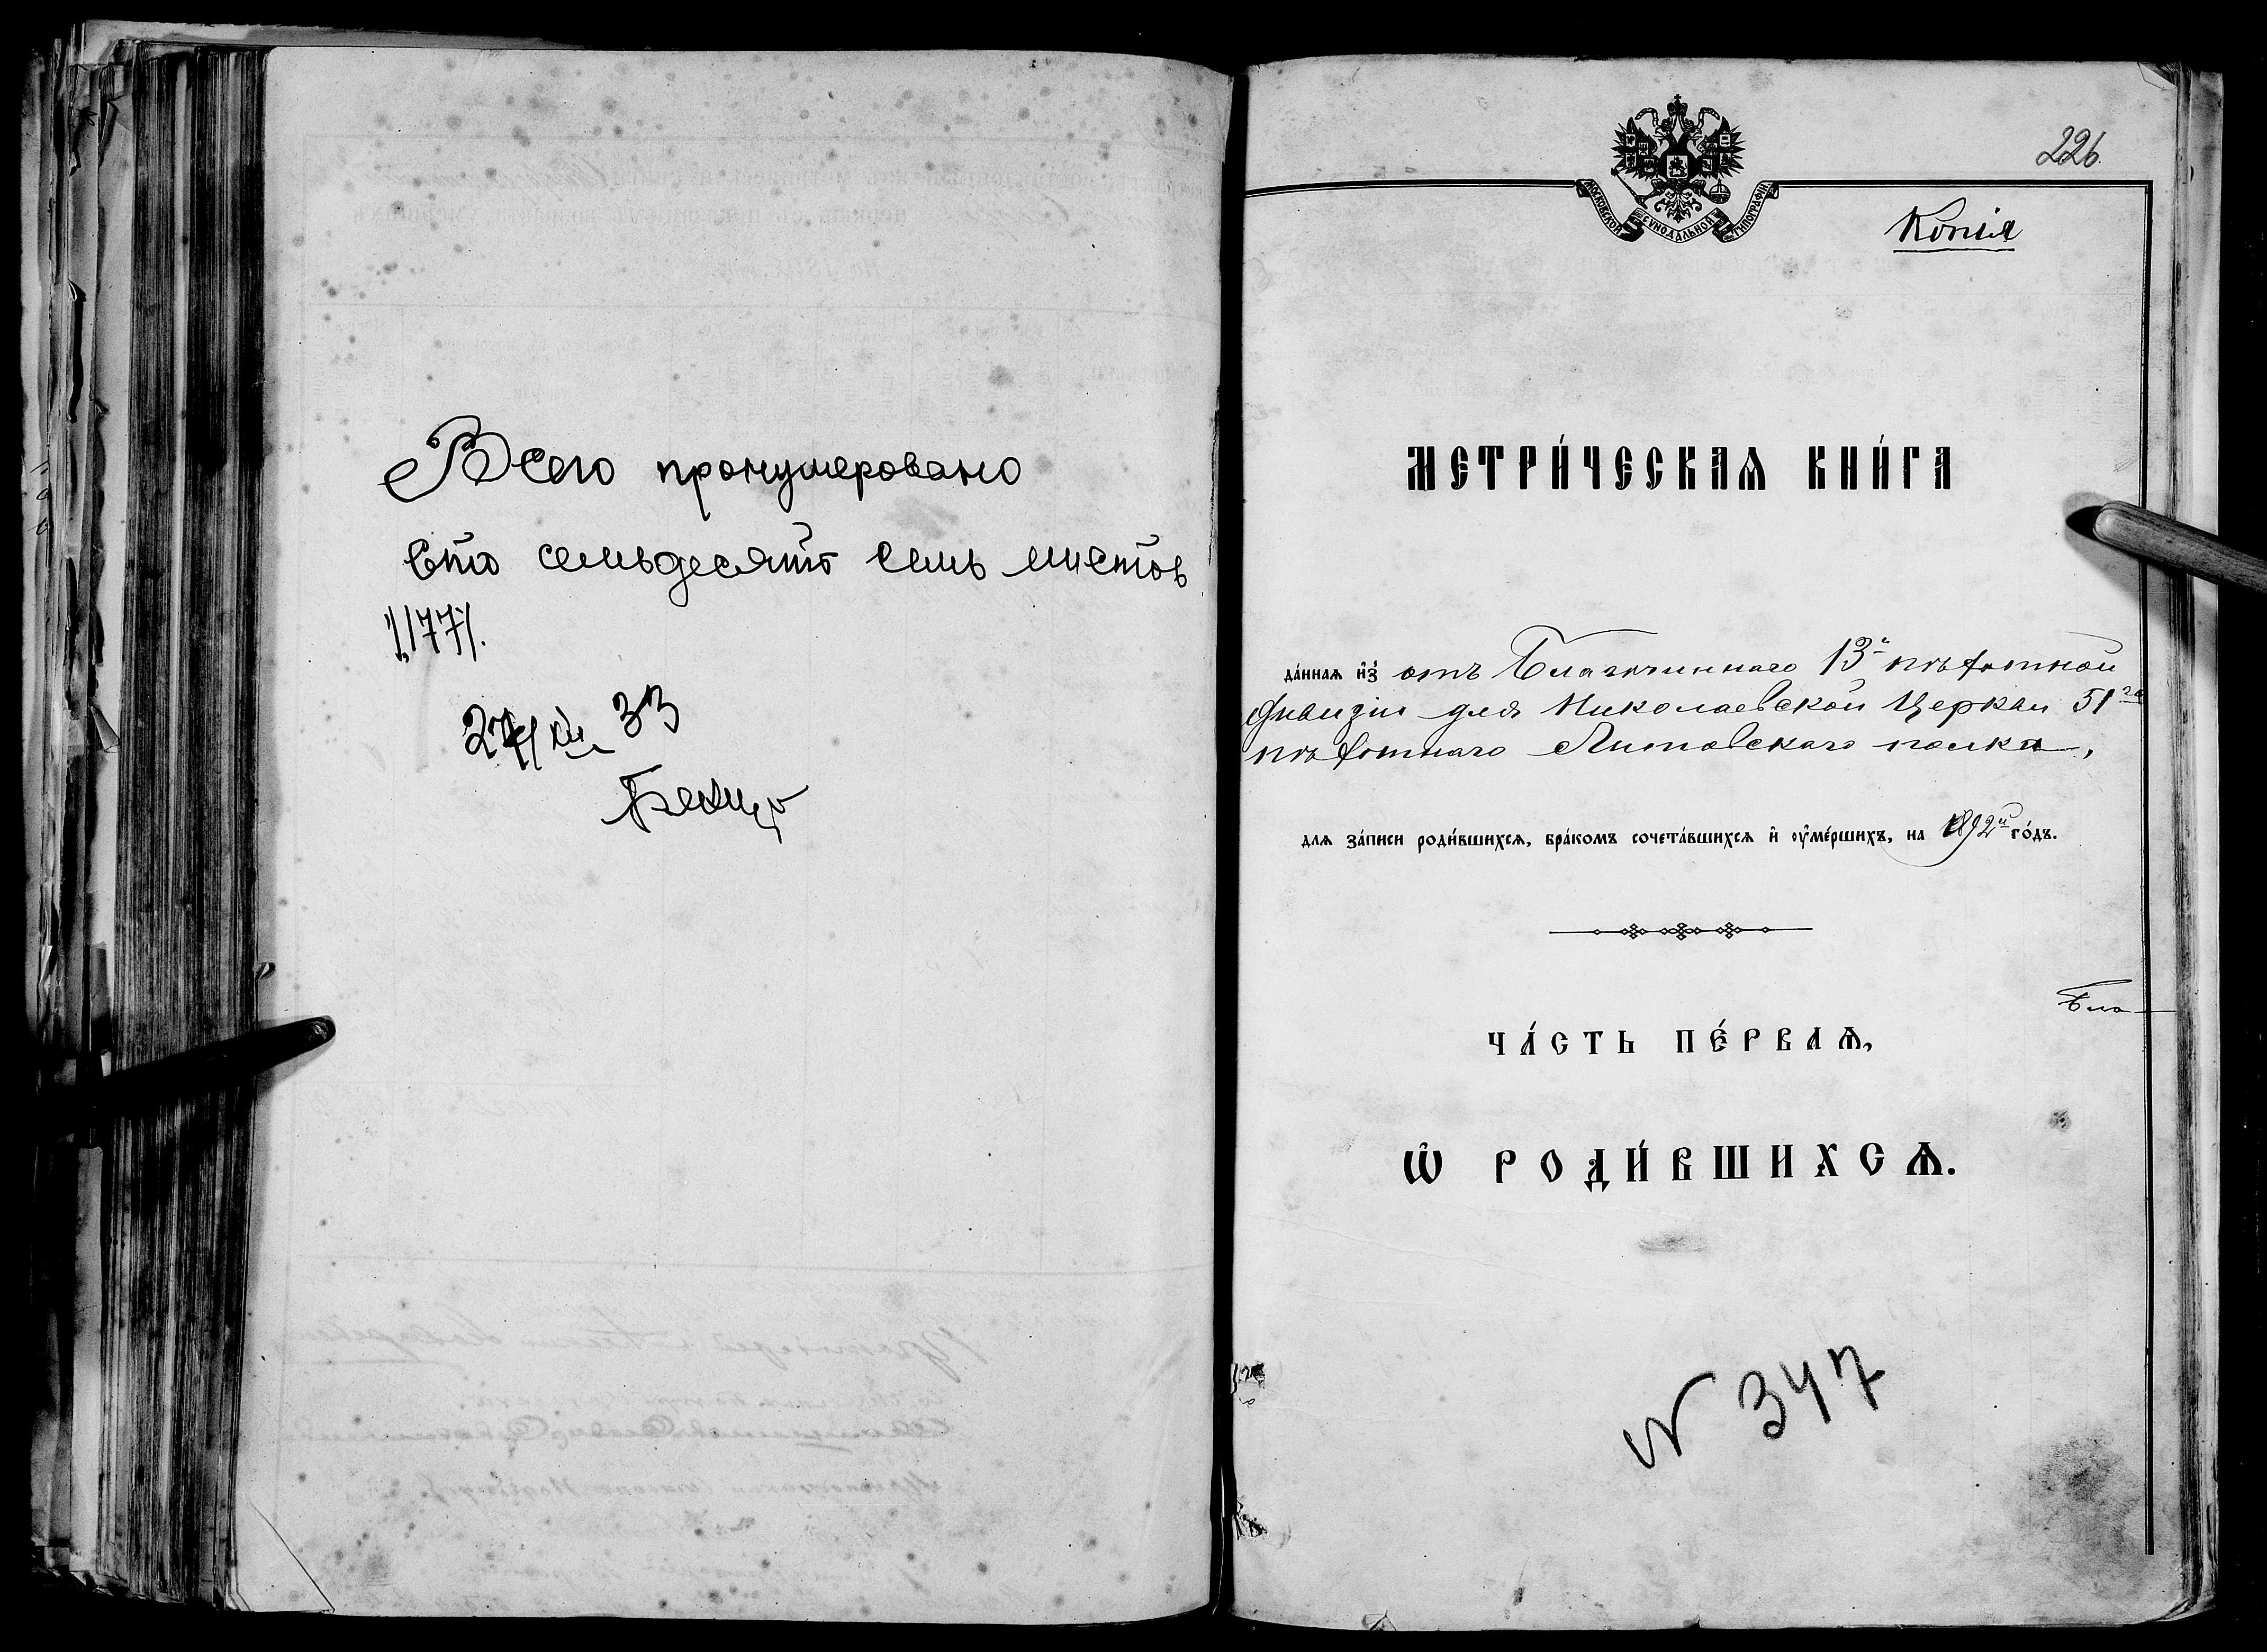 Всего пронумеровано
сто семьдесят семь листов
/177/.
27/XII 33
226
МОСКОВСКОЙ СѴНОДАЛЬНОЙ ТИПОГРАФІИ
Копія
МЕТРИ́ЧЕСКАѦ КНИ́ГА
да́ннаѧ и҆з̾ отъ Благочиннаго 13й пѣхотной
дивизіи для Николаевской Церкви 51го
пѣхотнаго Литовскаго полка,
для за́писи роди́вшихсѧ, бра́комъ сочета́вшихсѧ и҆ оу҆ме́ршихъ, на 1892й го́дъ.
Бла-
ЧА́СТЬ ПЕ́РВАѦ,
Ѡ҆ РОДИ́ВШИХСѦ.
N 347